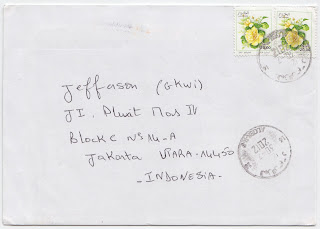 Jeffason (GKWI)
JI. Pluit Mas IV
Block C N°14-A
Jakarta UTARA-14450
-INDONESIA-